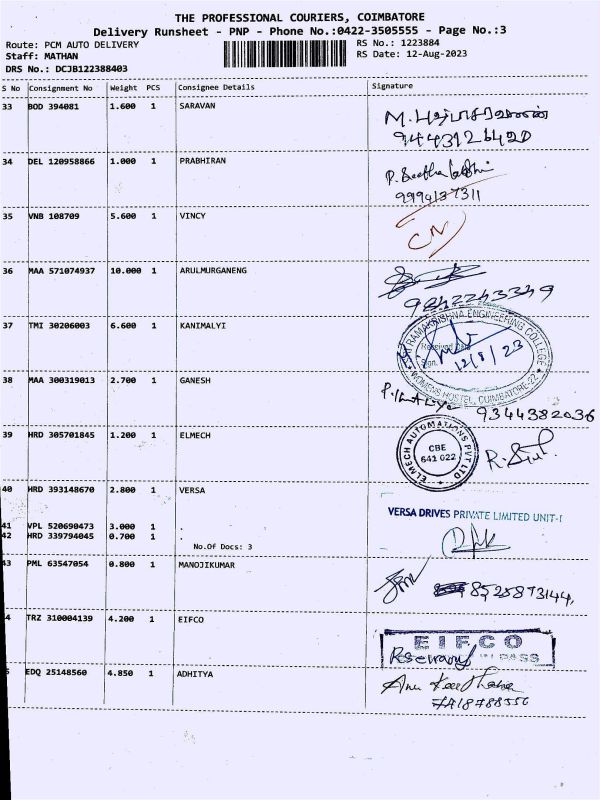 THE PROFESSIONAL COURIERS, COIMBATORE
Delivery Runsheet - PNP - Phone No.:0422-3505555 - Page No.:3
Route: PCM AUTO DELIVERY RS No.: 1223884
Staff: MATHAN RS Date: 12-Aug-2023
DRS No.: DCJB122388403
S No Consignment No Weight PCS Consignee Details Signature
33 BOD 394081 1.600 1 SARAVAN
9443126420
34 DEL 120958866 1.000 1 PRABHIRAN
9994137311
35 VNB 108709 5.600 1 VINCY
36 MAA 571074937 10.000 1 ARULMURGANENG
9842243349
37 TMI 30206003 6.600 1 KANIMALYI
SRI RAMAKRISHNA ENGINEERING COLLEGE
12/8/23
WOMENS HOSTEL, COIMBATORE-22
38 MAA 300319013 2.700 1 GANESH
9344382036
39 HRD 305701845 1.200 1 ELMECH
ELMECH AUTOMATIONS PVT LTD
CBE
641 022
40 HRD 393148670 2.800 1 VERSA
VERSA DRIVES PRIVATE LIMITED UNIT-I
41 VPL 520690473 3.000 1
42 HRD 339794045 0.700 1
No.Of Docs: 3
43 PML 63547054 0.800 1 MANOJIKUMAR
8525873144,
4 TRZ 310004139 4.200 1 EIFCO
EIFCO
Rosemary PASS
5 EDQ 25148560 4.850 1 ADHITYA